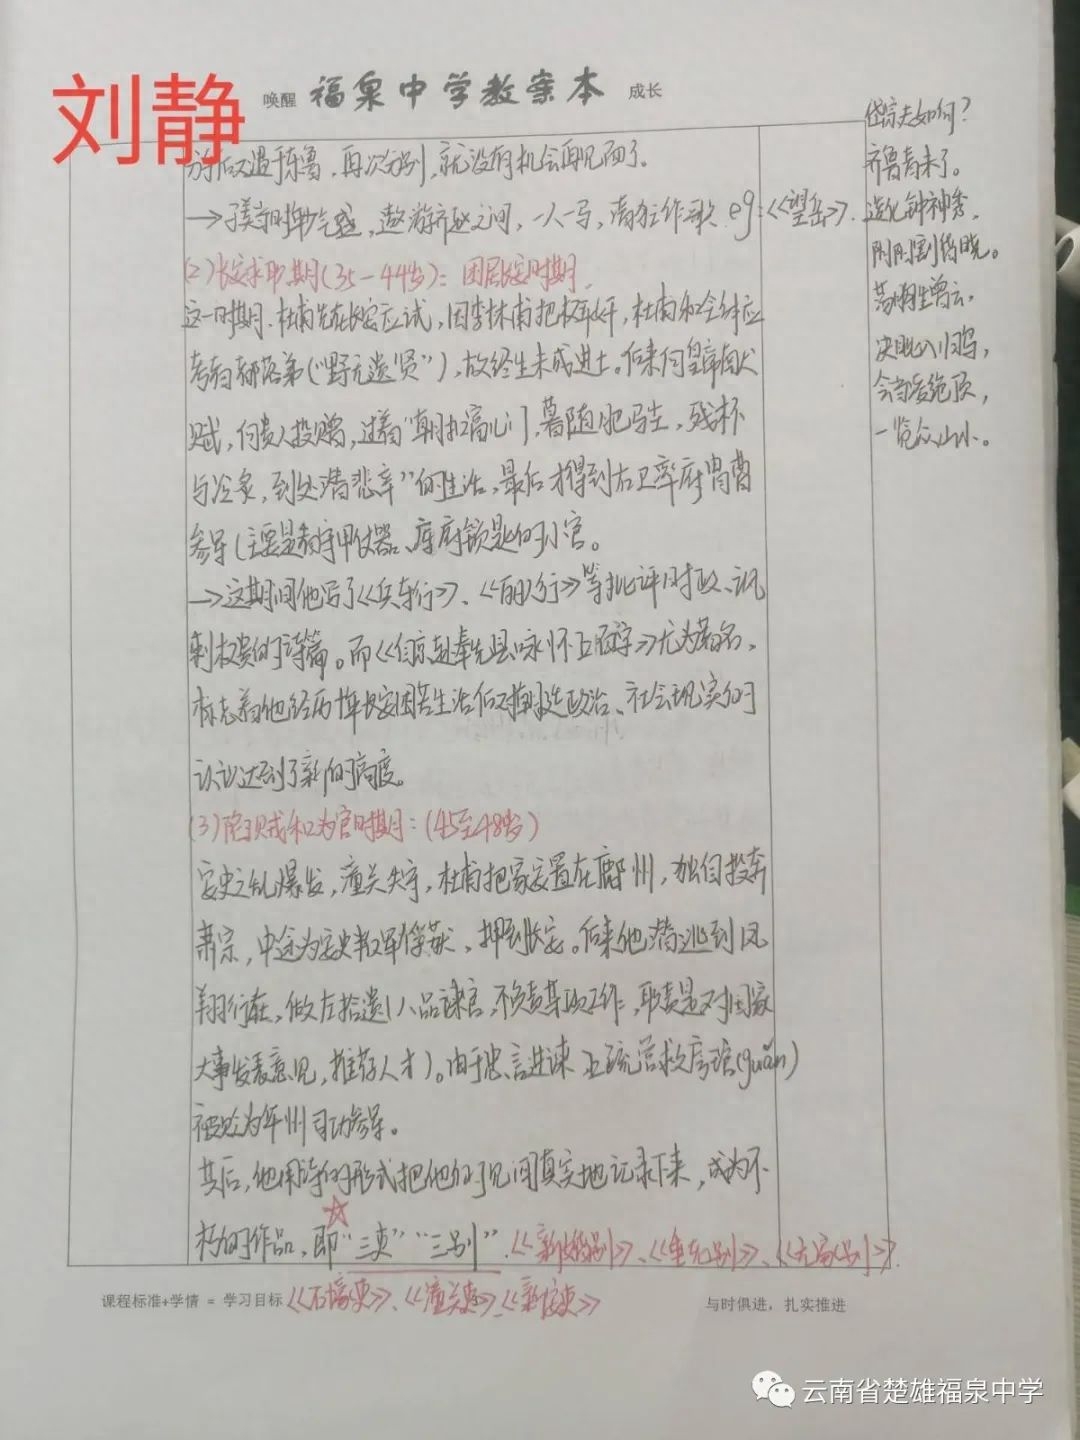 刘静
唤醒 福泉中学教案本 成长
分后又遇于东鲁，再次分别，就没有机会再见面了。
→子美与时挚气盛，遨游齐赵之间，一人一马，清狂作歌．eg：《望岳》．
(2)长安求职期(35－44岁)：困居长安时期．
这一时期．杜甫先在长安应试，因李林甫把权弄奸，杜甫和全体应
考者都落第("野无遗贤")，故终生未成进士。后来向皇帝献
赋，向贵人投赠，过着"朝扣富儿门，暮随肥马尘，残杯
与冷炙，到处潜悲辛"的生活，最后才得到右卫率府胄曹
参军(主要是看守甲仗器、库府锁匙的小官。
→这期间他写了《兵车行》、《丽人行》等批评时政、讽
刺权贵的诗篇。而《自京赴奉先县咏怀五百字》尤为著名，
标志着他经历十年长安困苦生活后对朝廷政治、社会现实的
认识达到了新的高度。
(3)陷贼和为官时期：(45至48岁)
安史之乱爆发，潼关失守，杜甫把家安置在鄜州，独自投奔
肃宗，中途为安史叛军俘获，押到长安。后来他潜逃到凤
翔行在，做左拾遗(八品谏官，不负责某项工作，职责是对国家
大事发表意见，推荐人才)。由于忠言进谏 上疏营救房琯(guǎn)
被贬为华州司功参军。
其后，他用诗的形式把他的了见闻真实地记录下来，成为不
朽的作品，即"三吏""三别"．《新婚别》、《垂老别》、《无家别》．
《石壕吏》、《潼关吏》、《新安吏》
课程标准+学情 = 学习目标
与时俱进，扎实推进
岱宗夫如何？
齐鲁青未了。
造化钟神秀，
阴阳割昏晓。
荡胸生曾云，
决眦入归鸟，
会当凌绝顶，
一览众山小。
云南省楚雄福泉中学